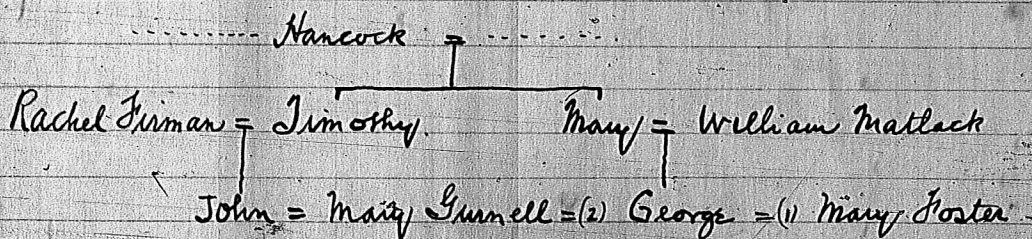 .......... Hancock = .......
Rachel Firman = Timothy. Mary = William Matlack
John = Mary Gurnell =(2) George =(1) Mary Foster.